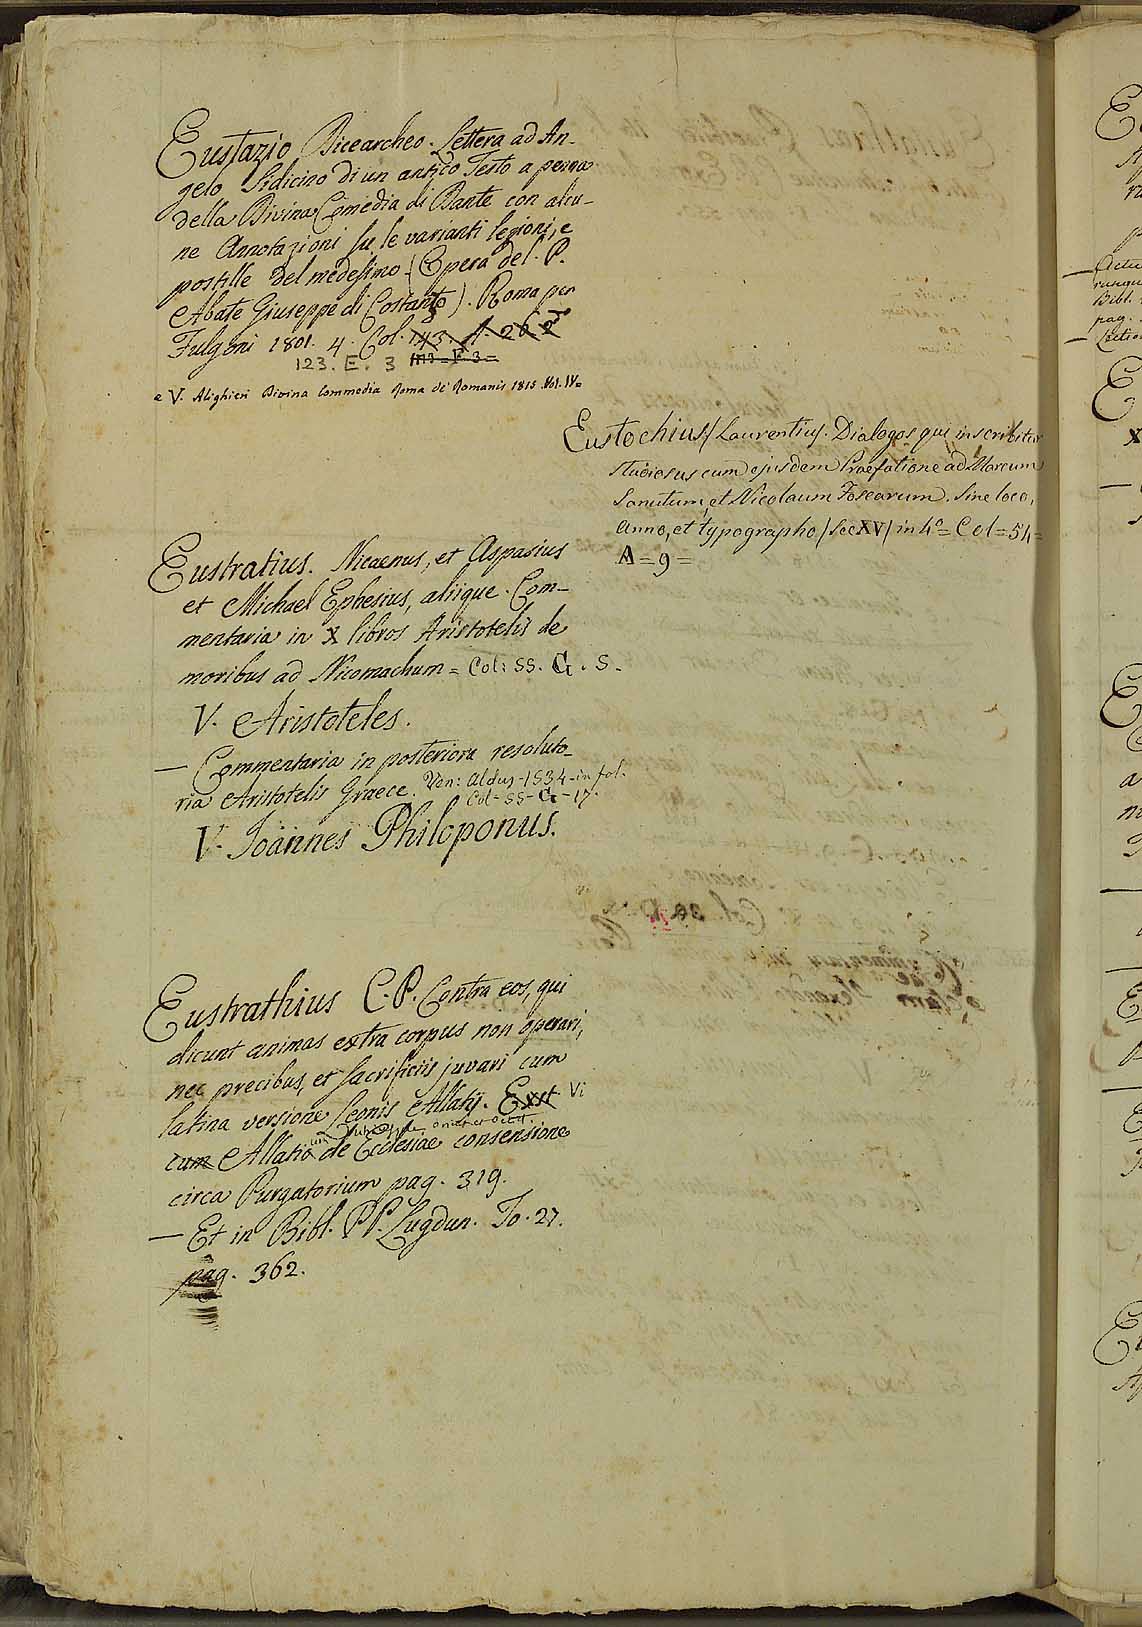 Eustazio Dicearcheo. Lettera ad An-
gelo Sidicino di un antico Testo a penna
della Divina Comedia di Dante con alcu-
ne Annotazioni su le varianti lezioni, e
postille del medesimo. (Opera del P.
Abate Giuseppe di Costanzo). Roma per
Fulgoni 1801. 4. Col.
123. E. 3
e V. Alighieri Divina Commedia Roma de Romanis 1815. Vol. IV=
Eustochius/ Laurentius. Dialogos qui inscribitur
studiosus cum ejusdem Praefatione ad Marcum
Sanutum, et Nicolaum Foscarum. Sine loco,
anno, et typographo/ Sec XV/ in 4º = Col = 54 =
A = 9 =
Eustratius. Nicaenus, et Aspasius
et Michael Ephesius, aliique. Com-
mentaria in X libros Aristotelis de
moribus ad Nicomachum = Col: SS. G. 5.
V. Aristoteles.
— Commentaria in posteriora resoluto-
ria Aristotelis Graece. Ven: Aldus - 1534 - in fol.
Col - SS - G - 17.
V. Joannes Philoponus.
Eustrathius C. P. Contra eos, qui
dicunt animas extra corpus non operari,
nec precibus, et sacrificiis juvari cum
latina versione Leonis Allatij. Exst Vi
cum Allatio de Ecclesiae consensione
circa Purgatorium pag. 319.
— Et in Bibl. PP. Lugdun. To. 27.
pag. 362.